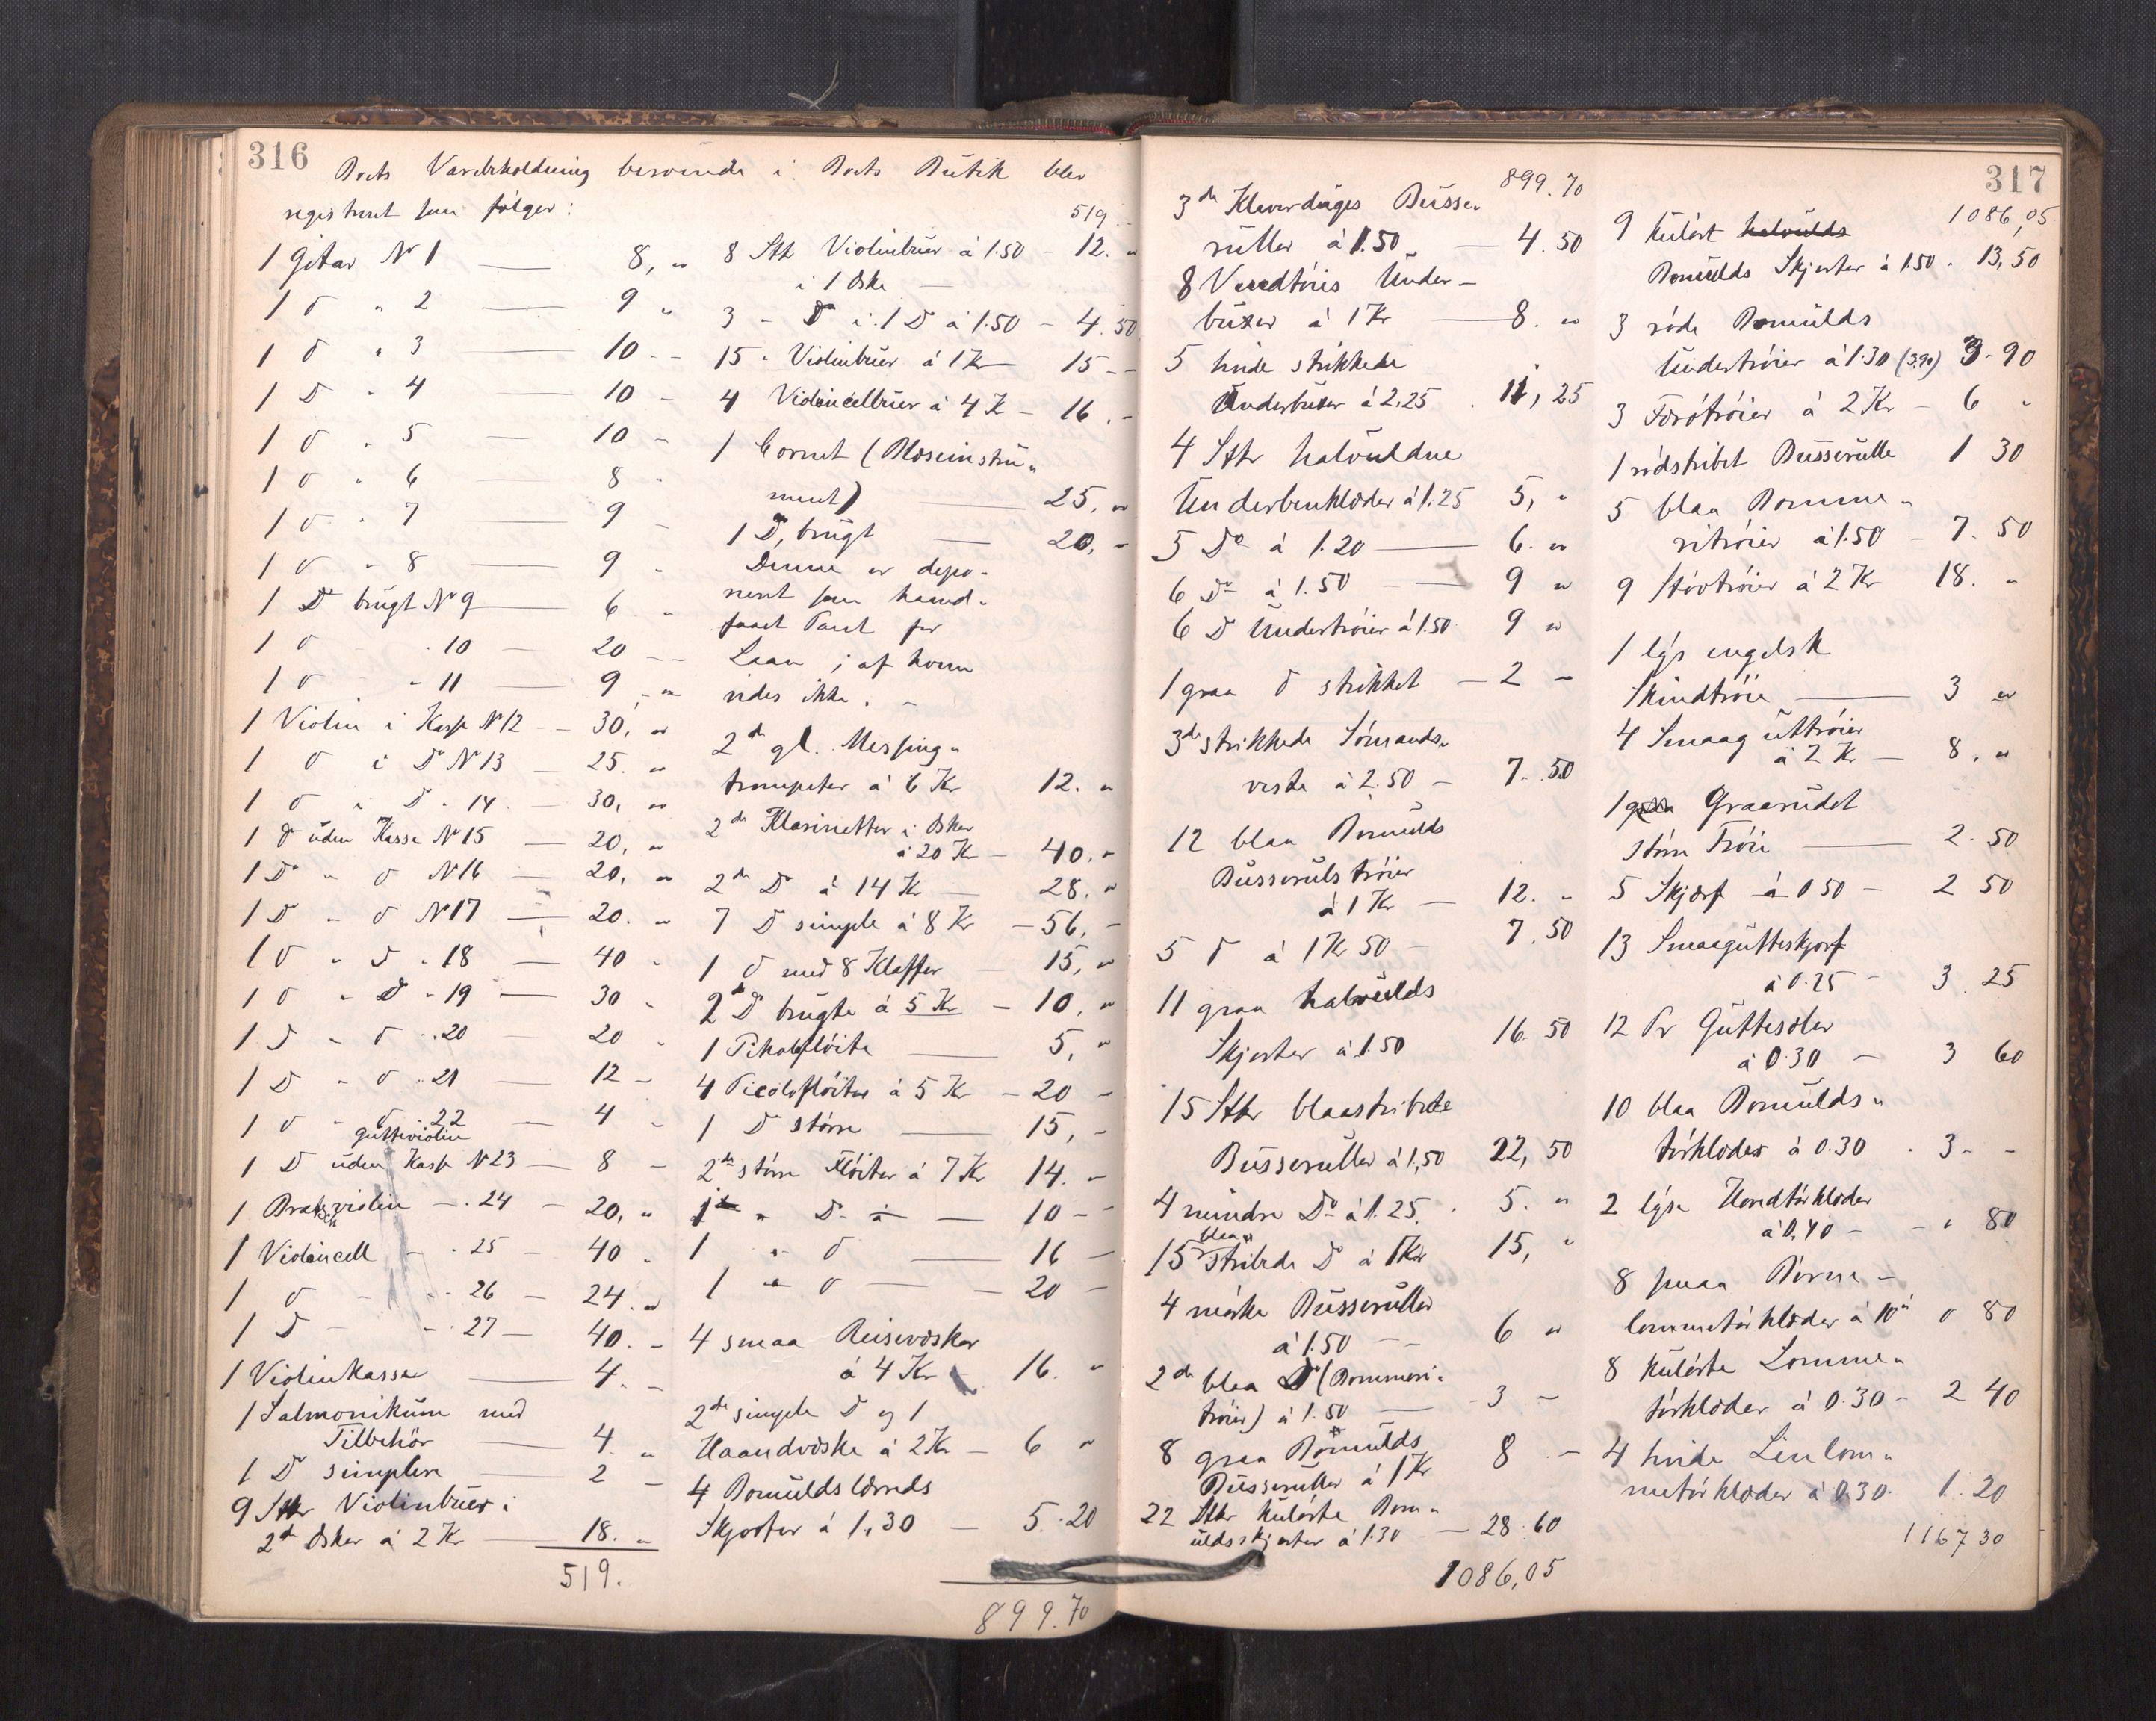 316
Boets Varebeholdning beroende i Boets Butik blev
registreret som følger:
1 Gitar № 1 — 8, "
1 Dº " 2 — 9 "
1 Dº " 3 — 10 - -
1 Dº " 4 — 10 -
1 Dº " 5 — 10 -
1 Dº " 6 — 8 -
1 Dº " 7 — 9 -
1 Dº " 8 — 9 "
1 Dº brugt № 9 — 6 "
1 Dº - " 10 — 20 - -
1 Dº " 11 — 9, "
1 Violin i Kasse № 12 — 30, "
1 Dº i Dº № 13 — 25. "
1 Dº i Dº " 14 — 30, "
1 Dº uden Kasse № 15 — 20, "
1 Dº " Dº № 16 — 20, "
1 Dº " Dº № 17 — 20. "
1 Dº " Dº " 18 — 40 "
1 Dº " Dº " 19 — 30 "
1 Dº " Dº " 20 — 20 "
1 Dº " Dº " 21 — 12 -
1 Dº " Dº " 22 — 4 -
Gutteviolin
1 Dº uden Kasse № 23 — 8 -
1 Bratschviolin — " 24 — 20, "
1 Violincell — " 25 — 40 "
1 Dº — " 26 — 24. "
1 Dº — " 27 — 40. -
1 Violinkasse — 4. -
1 Salmonikum med
Tilbehör — 4. "
1 Dº simplere — 2 -
9 Stkr Violinbuer i
2de Esker á 2 Kr — 18. "
519.
519 -
8 Stk Violinbuer á 1.50 - 12. "
i 1 Eske —
3 - Dº i 1 Dº á 1.50 - 4.50
15 " Violinbuer á 1 Kr — 15 - -
4 Violincellbuer á 4 K - 16. -
1 Cornet (Blæseinstru-
ment) — 25, "
1 Dº, brugt — 20, -
Denne er depo-
neret som haand-
faaet Pant for
Laan; af hvem
vides ikke. -
2de gl. Messing-
trompeter á 6 Kr 12. "
2de Klarinetter i Esker
á 20 Kr — 40. "
2de Dº á 14 Kr — 28. "
7 Dº simple á 8 Kr — 56, -
1 Dº med 8 Klaffer 15, "
2de Dº brugte á 5 Kr — 10, "
1 Pikoloflöite — 5, "
4 Picoloflöiter á 5 Kr — 20 -
1 Dº större — 15, -
2de större Flöiter á 7 Kr 14. -
1 " Dº á — 10 - -
1 " Dº — 16 -
1 " Dº — 20 -
4 smaa Reisevæsker
á 4 Kr 16. "
2de simple Dº og 1
Haandvæske á 2 Kr — 6 "
4 Bomuldslærreds
Skjorter á 1,30 — 5.20
899.70
317
899.70
3de Kleverduges Busse-
ruller á 1.50 — 4.50
8 Verdtöies Under-
buxer á 1 Kr — 8. "
5 hvide strikkede
Underbuxer á 2,25 . 11,25
4 Stkr halvuldne
Underbenklæder á 1.25 5, "
5 Dº á 1.20 — 6. "
6 Dº á 1.50 — 9 "
6 Dº Undertröier á 1.50 9 "
1 graa Dº strikket — 2 -
3de strikkede Sömands-
veste á 2.50 — 7.50
12 blaa Bomulds
Busserulstrøier
á 1 Kr — 12. -
5 Dº á 1 Kr 50 — 7.50
11 graa halvulds
Skjorter á 1.50 16.50
15 Stkr blaastribede
Busseruller á 1,50 22,50
4 mindre Dº á 1.25. . 5. "
blaa-
15 stribede Dº á 1 Kr 15, "
4 mörke Busseruller
á 1.50 — 6 "
2de blaa Dº (Bommeri-
tröier) á 1.50 — 3 -
8 graa Bomulds
Busseruller á 1 Kr 8 -
22 Stkr kulörte Bom-
uldsskjorter á 1.30 — 28.60
1086,05
1086,05
9 kulört halvulds
Bomulds Skjorter á 1.50 . 13,50
3 röde Bomulds
Undertröier á 1.30 (3.90) 3-90
3 Færötröier á 2 Kr — 6 "
1 rödstribet Busserulle 1 30
5 blaa Bomme-
ritröier á 1.50 — 7.50
9 Störtröier á 2 Kr 18. "
1 lys engelsk
Skindtröie — 3 "
4 Smaaguttröier
á 2 Kr — 8, "
1 graa Graarudet
större Tröie — 2.50
5 Skjærf á 0 50 — 2 50
13 Smaagutteskjorf
á 0.25 — 3.25
12 Pr Gutteseler
á 0.30 — 3 60
10 blaa Bomulds-
törklæder á 0.30 . 3- -
2 lyse Hovedtörklæder
á 0,40 — - " 80
8 smaa Börne-
lommetörklæder á 10" 0 80
8 kulörte Lomme-
törklæder á 0.30 — 2 40
4 hvide Linlom-
metörklæder á 0.30. 1.20
1167 30